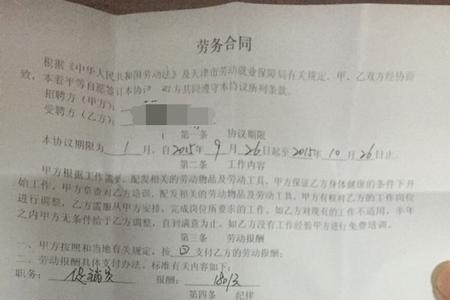 劳务合同
根据《中华人民共和国劳动法》及天津市劳动就业保障局有关规定,甲、乙双方经协商
致,本着平等自愿签订本协议 方共同遵守本协议所列条款。
招聘方(甲方):
受聘方(乙方):
第一条 协议期限
本协议期限为 1 月,自2015年9月26日起至2015年10月26日止。
第二条 工作内容
甲方根据工作需要,配发相关的劳动物品及劳动工具,甲方保证乙方身体健康的条件下开
始工作,甲方负责对乙方培训,配发相关的劳动物品及劳动工具,甲方有权对乙方的工作岗位
进行调整,乙方需服从甲方安排,完成岗位所要求的工作,如乙方对现有的工作不适用,半年
之内甲方无条件给于乙方调整,直到满意为止。如乙方没有工作经验甲方进行免费培训。
第三条 劳动报酬
一、甲方按照和当地有关规定,按 日 支付乙方的劳动报酬。
二、劳动报酬具体支付办法、标准有关内容如下:
职务: 促销员 报酬: 180/天
第四条 纪律